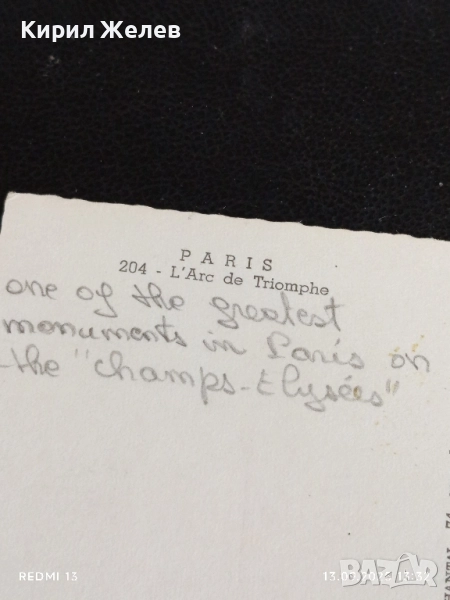 Кирил Желев
PARIS
204 - L'Arc de Triomphe
one of the greatest
monuments in Paris on
the "champs-Elysées"
REDMI 13
BAZAR